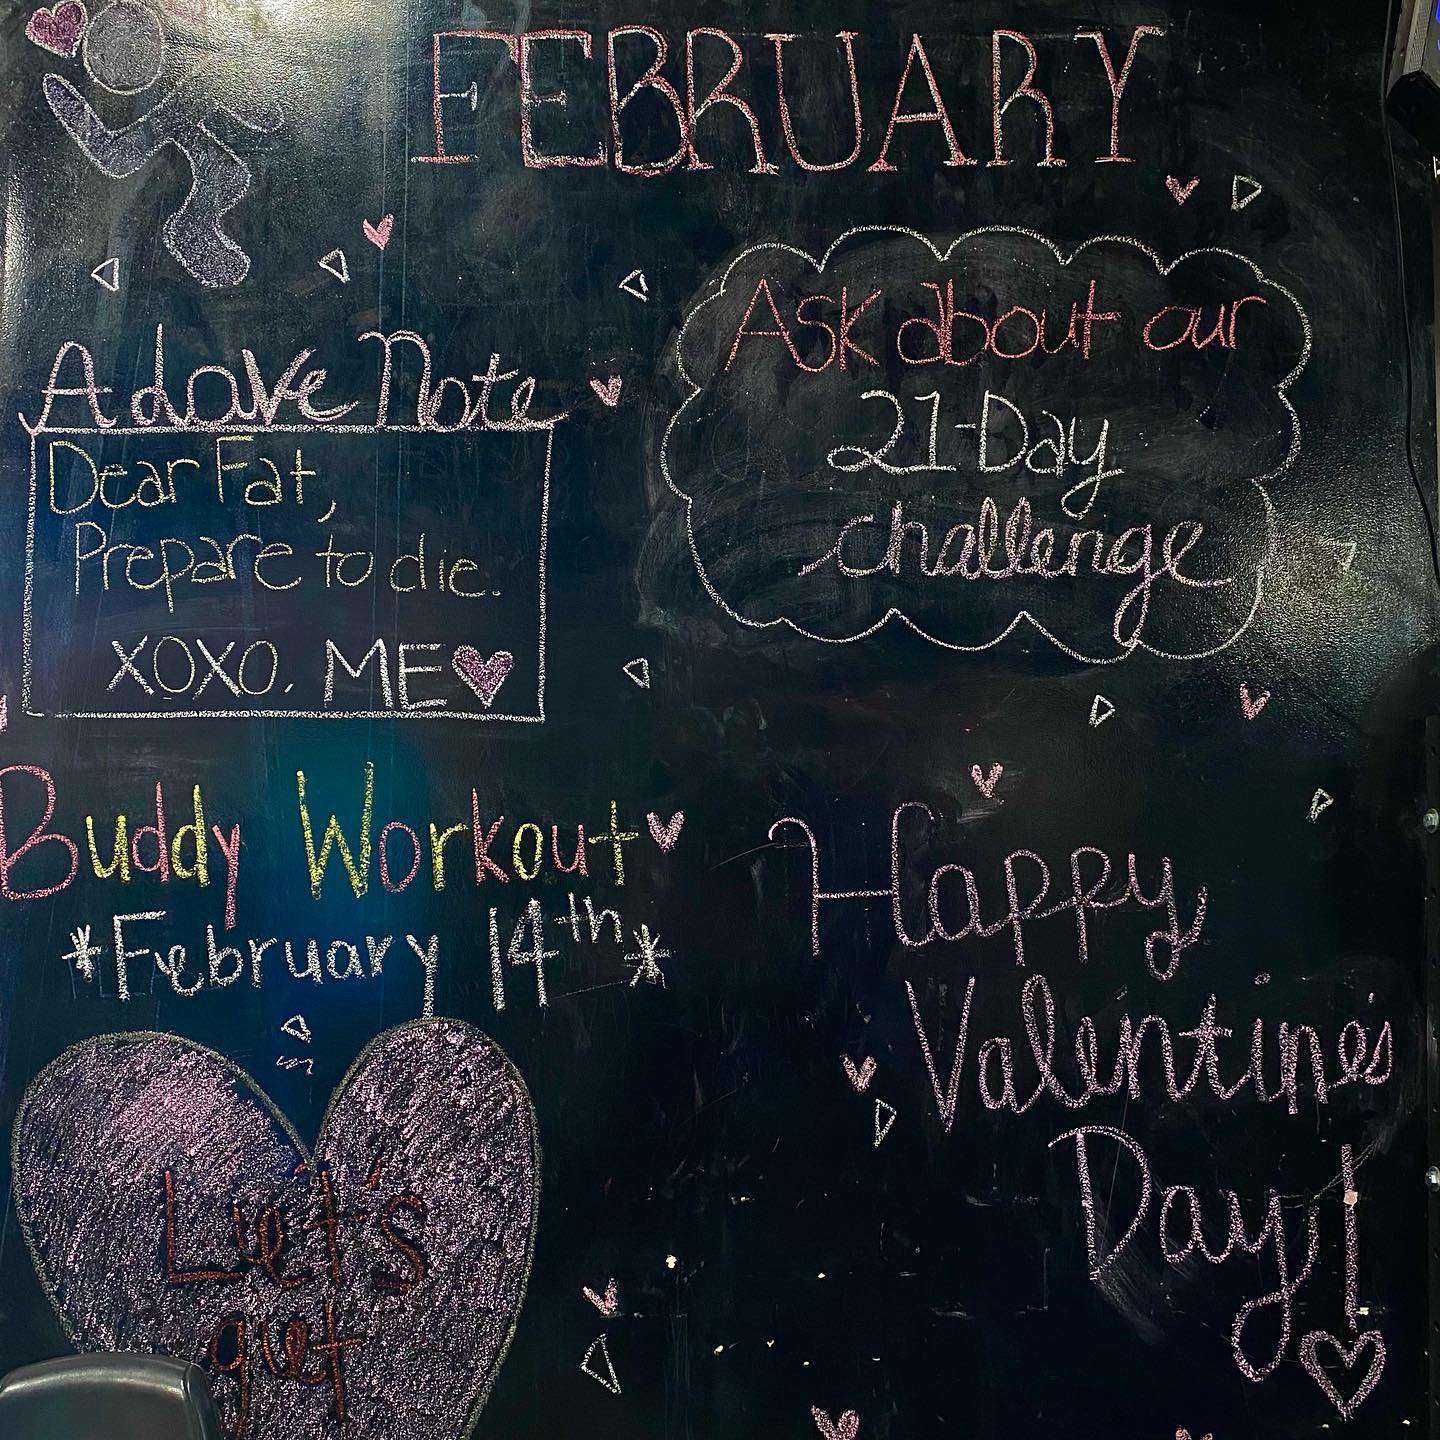 FEBRUARY
A Love Note
Dear Fat,
Prepare to die.
XOXO. ME
Ask about our
21-Day
challenge
Buddy Workout
*February 14th*
Happy
Valentine's
Day!
Let's
get